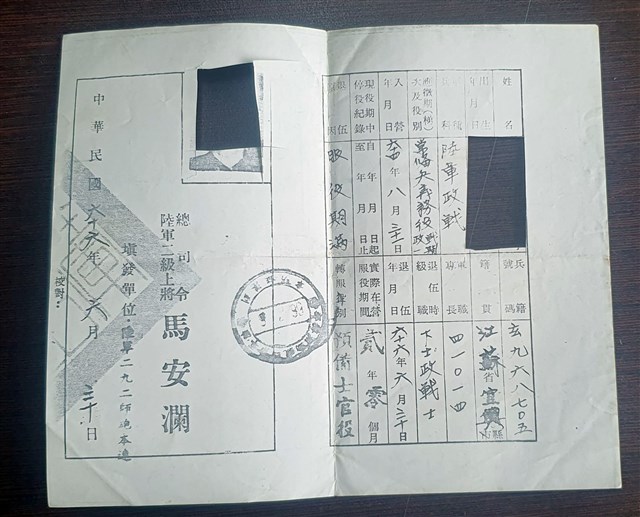 姓名
出生年月日
陸軍政戰
梯次及役別
常備兵義務役
入營年月日
六四年八月三十日
現役期中停役紀錄
自年月日起
至年月日止
服役期滿
兵籍號碼
玄九六八七〇五
籍貫
江蘇省宜興縣
軍職專長
四一〇一四
退伍時級職
下士政戰士
退伍年月日
六十六年六月三十日
實際在營服役期間
貳年零個月
轉服役別
預備士官役
總司令
陸軍二級上將
馬安瀾
填發單位：陸軍二九二師砲本連
中華民國六十六年六月三十日
校對：